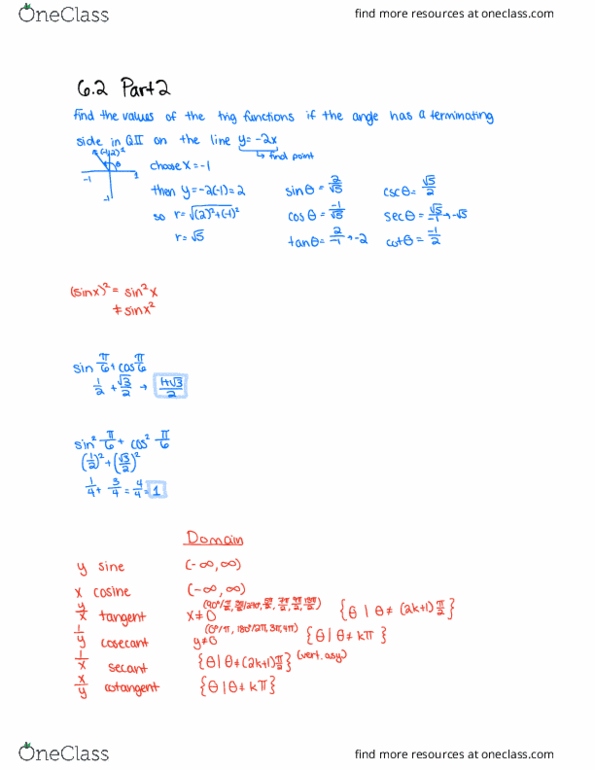 OneClass
find more resources at oneclass.com
6.2 Part 2
find the values of the trig functions if the angle has a terminating
side in QII on the line y = -2x
(-1,2)
↳ find point
choose x = -1
-1
1
-1
then y = -2(-1) = 2
so r = √(2)² + (-1)²
r = √5
sinθ = 2/√5
cscθ = √5/2
cosθ = -1/√5
secθ = √5/-1 → -√5
tanθ = 2/-1 → -2
cotθ = -1/2
(sinx)² = sin²x
≠ sinx²
sin π/6 + cos π/6
1/2 + √3/2 → 1+√3/2
sin² π/6 + cos² π/6
(1/2)² + (√3/2)²
1/4 + 3/4 = 4/4 = 1
Domain
y sine (-∞,∞)
x cosine (-∞,∞)
y/x tangent x ≠ 0 {θ | θ ≠ (2k+1) π/2}
1/y cosecant y ≠ 0 {θ | θ ≠ kπ}
1/x secant {θ | θ ≠ (2k+1) π/2} (vert. asy)
x/y cotangent {θ | θ ≠ kπ}
OneClass
find more resources at oneclass.com